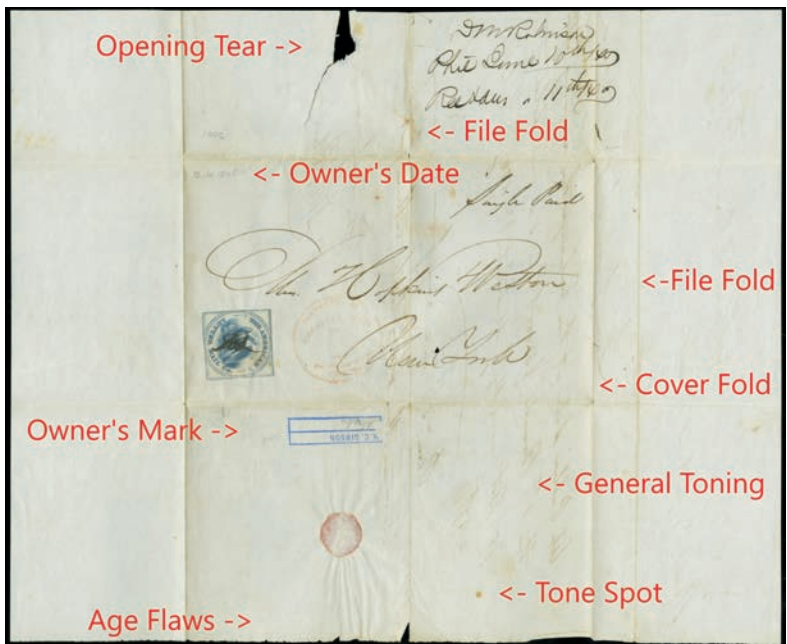 Opening Tear ->
D M Robinson
Phil June 10th/40
11th/40
<- File Fold
<- Owner's Date
Single Paid
<-File Fold
Mr. Hopkins Weston
New York
<- Cover Fold
Owner's Mark ->
<- General Toning
<- Tone Spot
Age Flaws ->